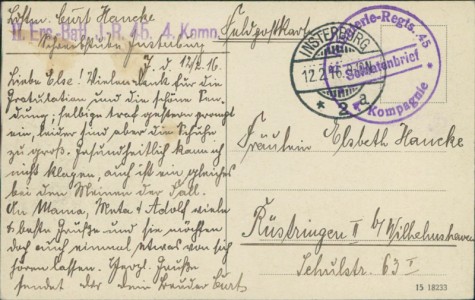 Abs: Curt Hancke
II. Ers.-Batl. I.-R. 45. 4. Komp.
Schreibstube Insterburg
J. d. 12/2. 16.
Liebe Else! Vielen Dank für die
Gratulation und die schöne Sen-
dung; selbige traf gestern prompt
ein, leider sind aber die Schuhe
zu groß. Gesundheitlich kann ich
nicht klagen, auch ist ein gleiches
bei den Meinen der Fall.
An Mama, Meta & Adolf viele
& beste Grüße und sie möchten
doch auch einmal etwas von sich
hören lassen. Herzl. Grüße
sendet dir dein Bruder Curt
Feldpostkarte
INSTERBURG
12.2.16. 
* 2 a
Infanterie-Regts. 45
Soldatenbrief
Kompagnie
Fräulein Elsbeth Hancke
Rüstringen II b/Wilhelmshaven
Schulstr. 63 I
15 18233